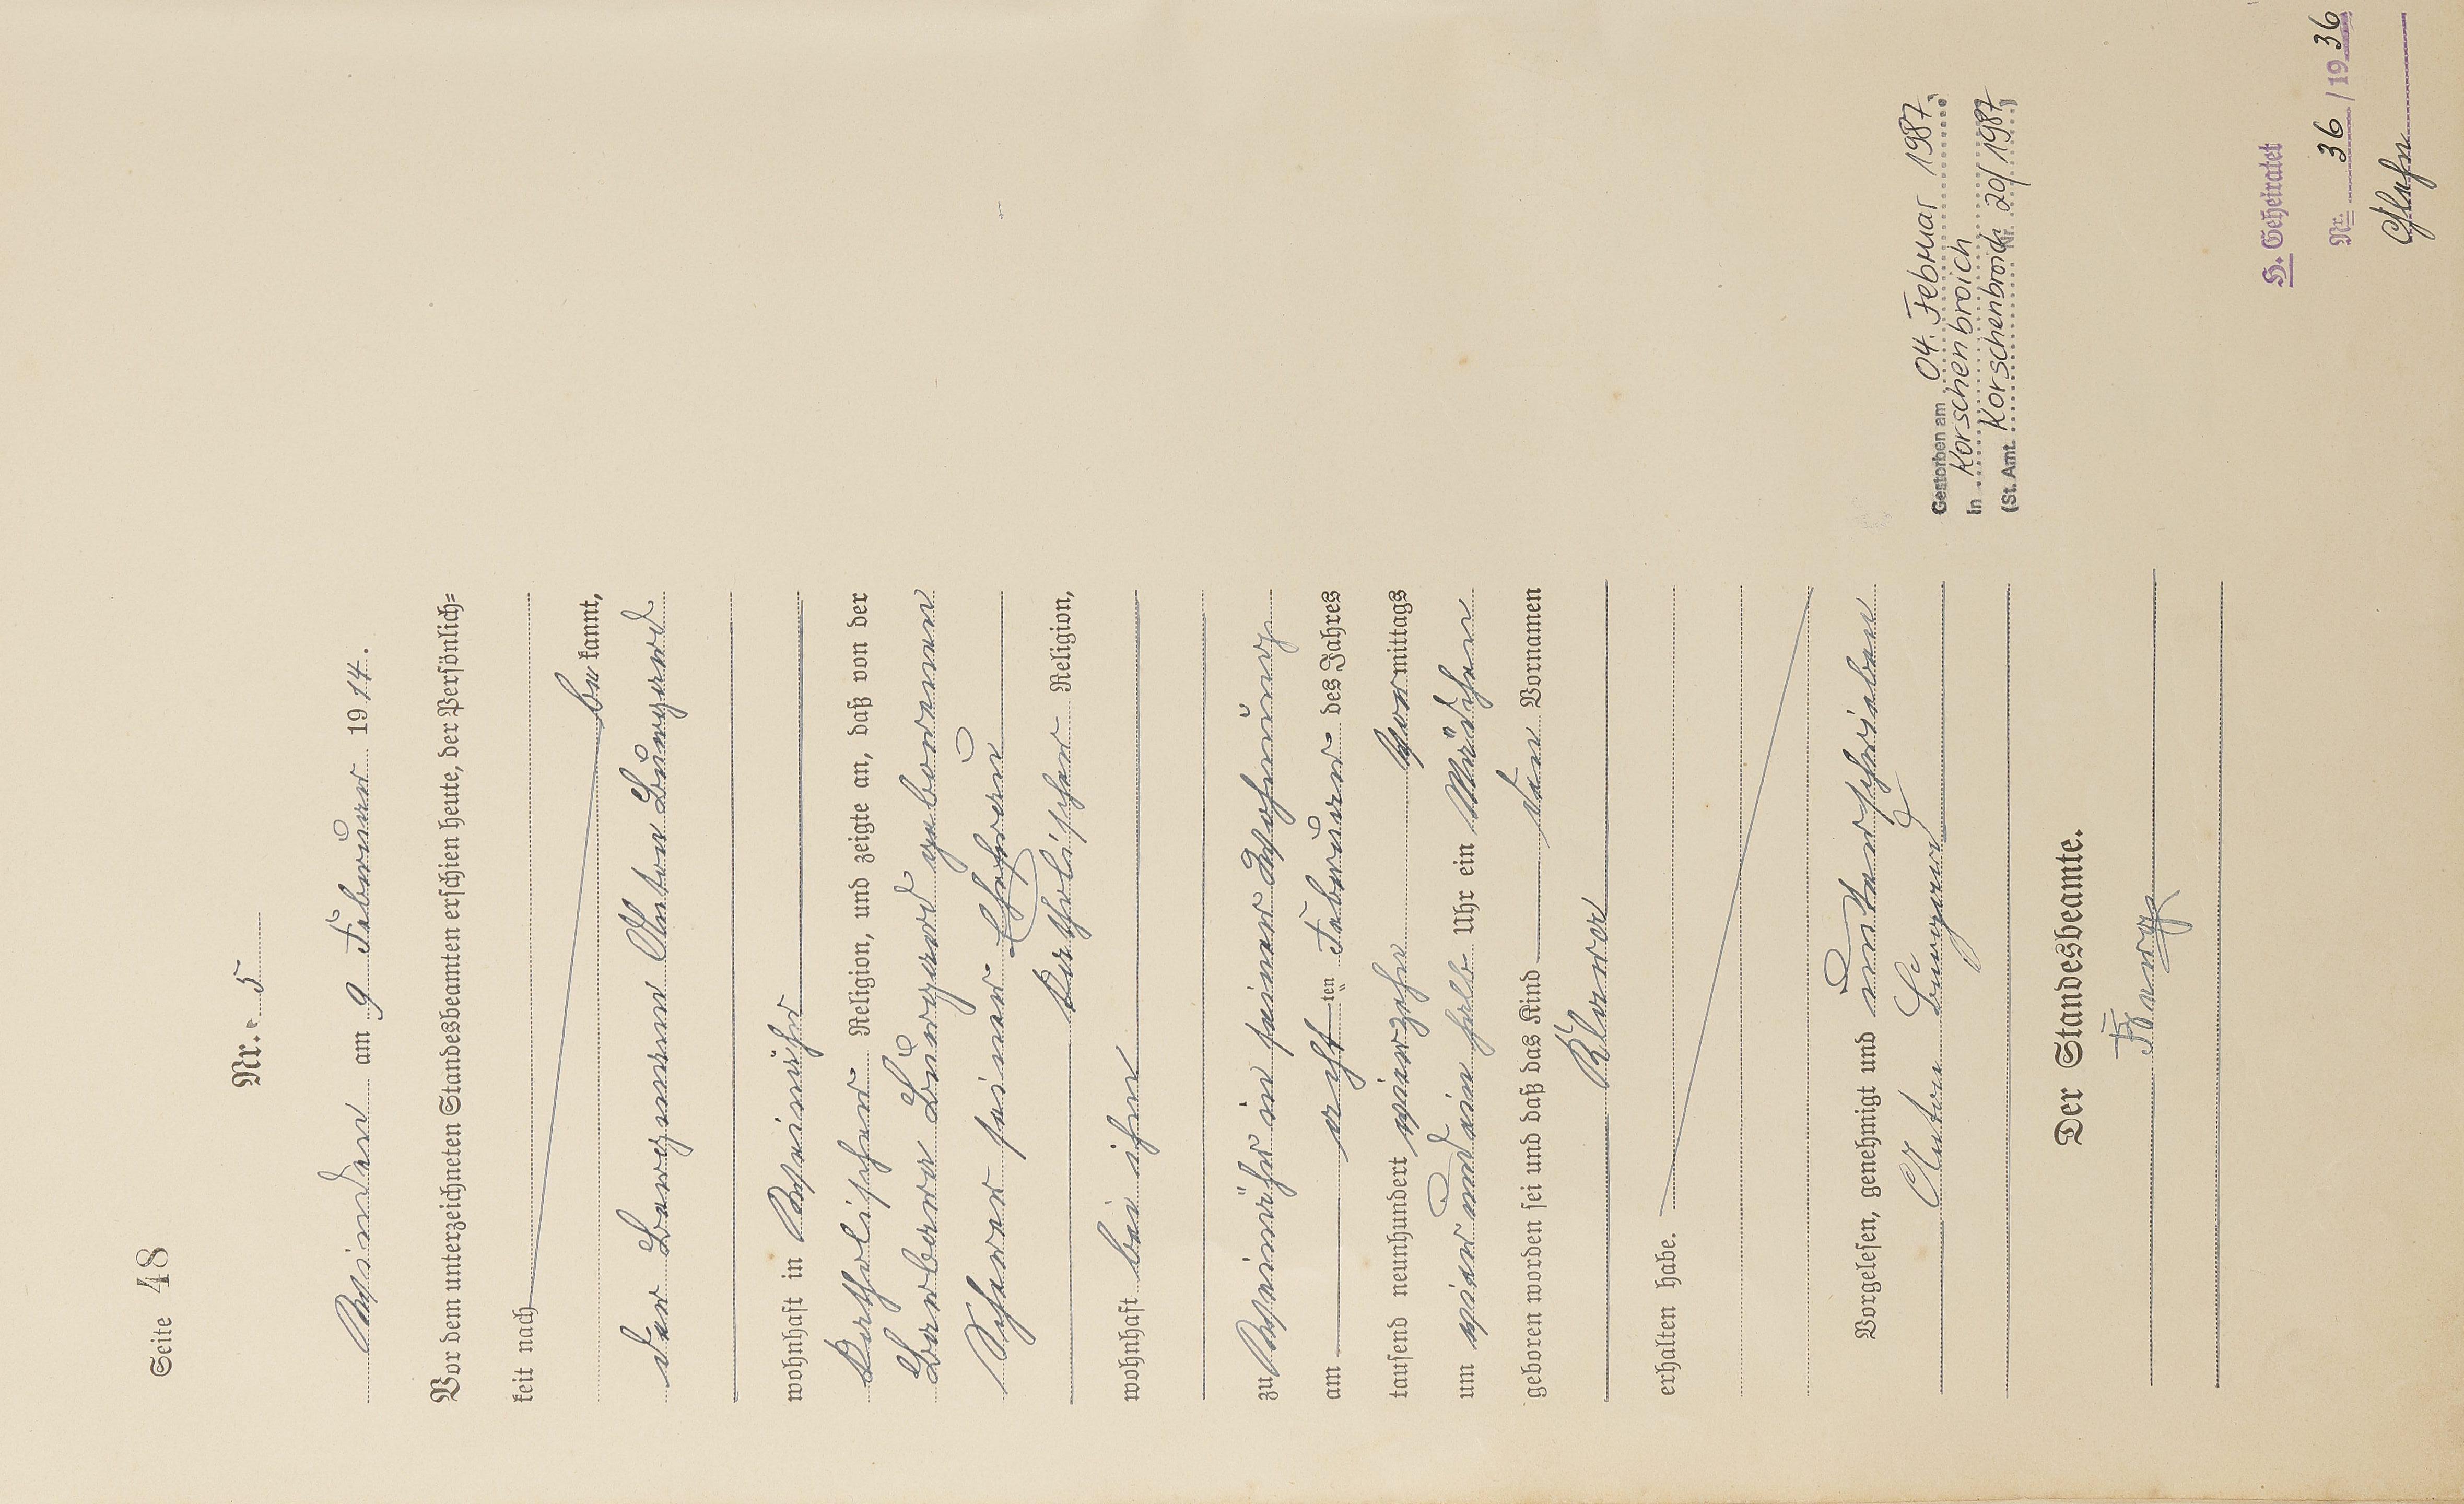 Seite 48
Nr. 5
Winden am 9 Februar 1914.
Vor dem unterzeichneten Standesbeamten erschien heute, der Persönlich=
keit nach
be kannt,
der Bergmann Anton Bungard
wohnhaft in Weinähr
katholischer Religion, und zeigte an, daß von der
Barbara Bungard geborenen
Scherer seiner Ehefrau
katholischer Religion,
wohnhaft bei ihm
zu Weinähr in seiner Wohnung
am acht ten Februar des Jahres
tausend neunhundert vierzehn Vormittags
um vier und ein halb Uhr ein Mädchen
geboren worden sei und daß das Kind den Vornamen
Klara
erhalten habe.
Vorgelesen, genehmigt und unterschrieben
Anton Bungard
Der Standesbeamte.
Gestorben am 04. Februar 1987
in Korschenbroich
(St. Amt. Korschenbroich Nr. 20/1987)
H. Geheiratet
Nr. 36 / 1936